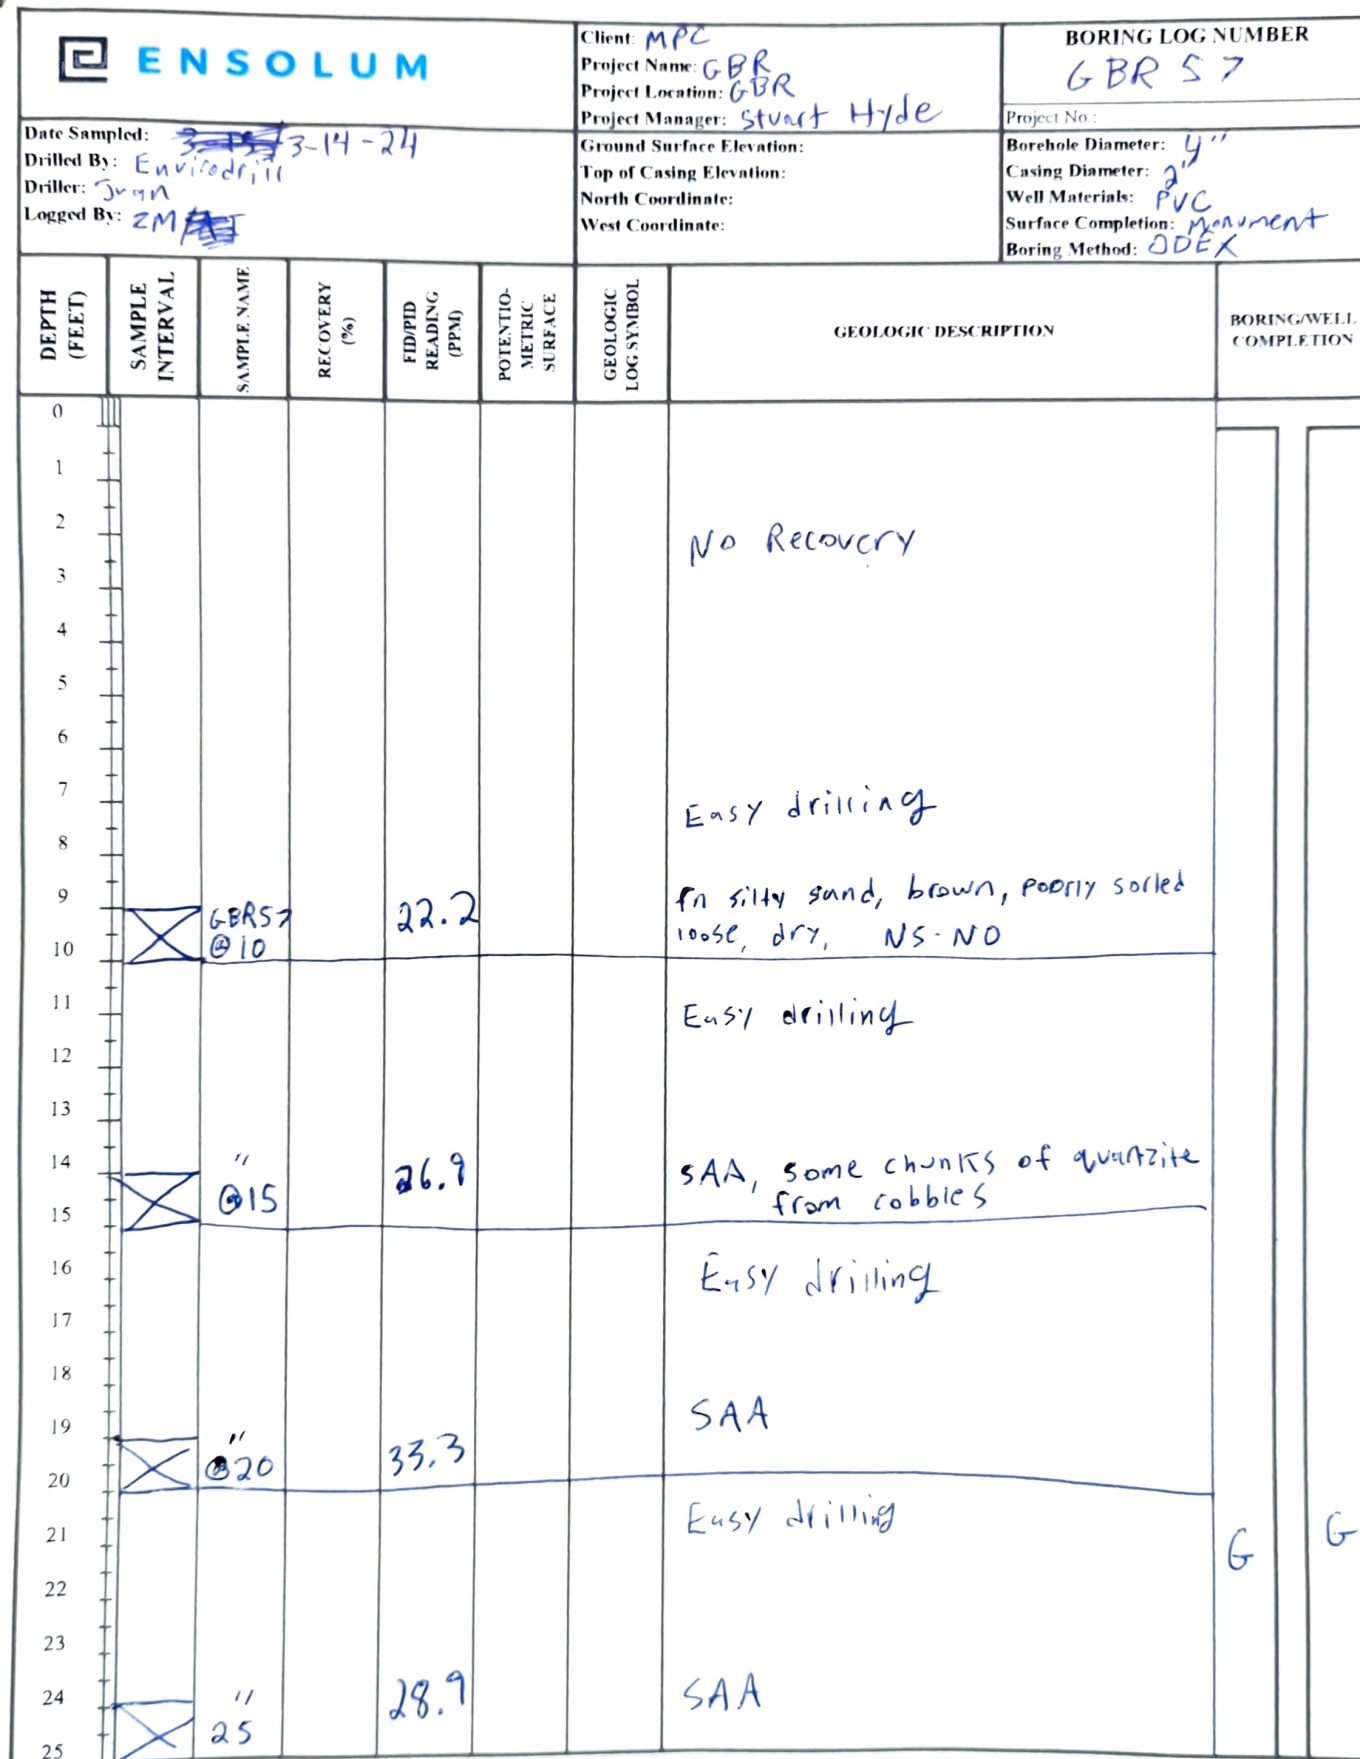 ENSOLUM
Client: MPC
Project Name: GBR
Project Location: GBR
Project Manager: Stuart Hyde
BORING LOG NUMBER
GBR 57
Project No.:
Date Sampled: 3-14-24
Drilled By: Envirodrill
Driller: Juan
Logged By: ZM
Ground Surface Elevation:
Top of Casing Elevation:
North Coordinate:
West Coordinate:
Borehole Diameter: 4"
Casing Diameter: 2"
Well Materials: PVC
Surface Completion: Monument
Boring Method: ODEX
DEPTH
(FEET)
SAMPLE
INTERVAL
SAMPLE NAME
RECOVERY
(%)
FID/PID
READING
(PPM)
POTENTIO-
METRIC
SURFACE
GEOLOGIC
LOG SYMBOL
GEOLOGIC DESCRIPTION
BORING/WELL
COMPLETION
0
1
2
No Recovery
3
4
5
6
7
Easy drilling
8
9
GBR57 22.2 fn silty sand, brown, poorly sorled
@10 loose, dry, NS-NO
10
11
Easy drilling
12
13
14 " 26.9 SAA, some chunks of quartzite
@15 from cobbles
15
16
Easy drilling
17
18
SAA
19
"
@20 33.3
20
Easy drilling
21
G G
22
23
24 " 28.9 SAA
25
25